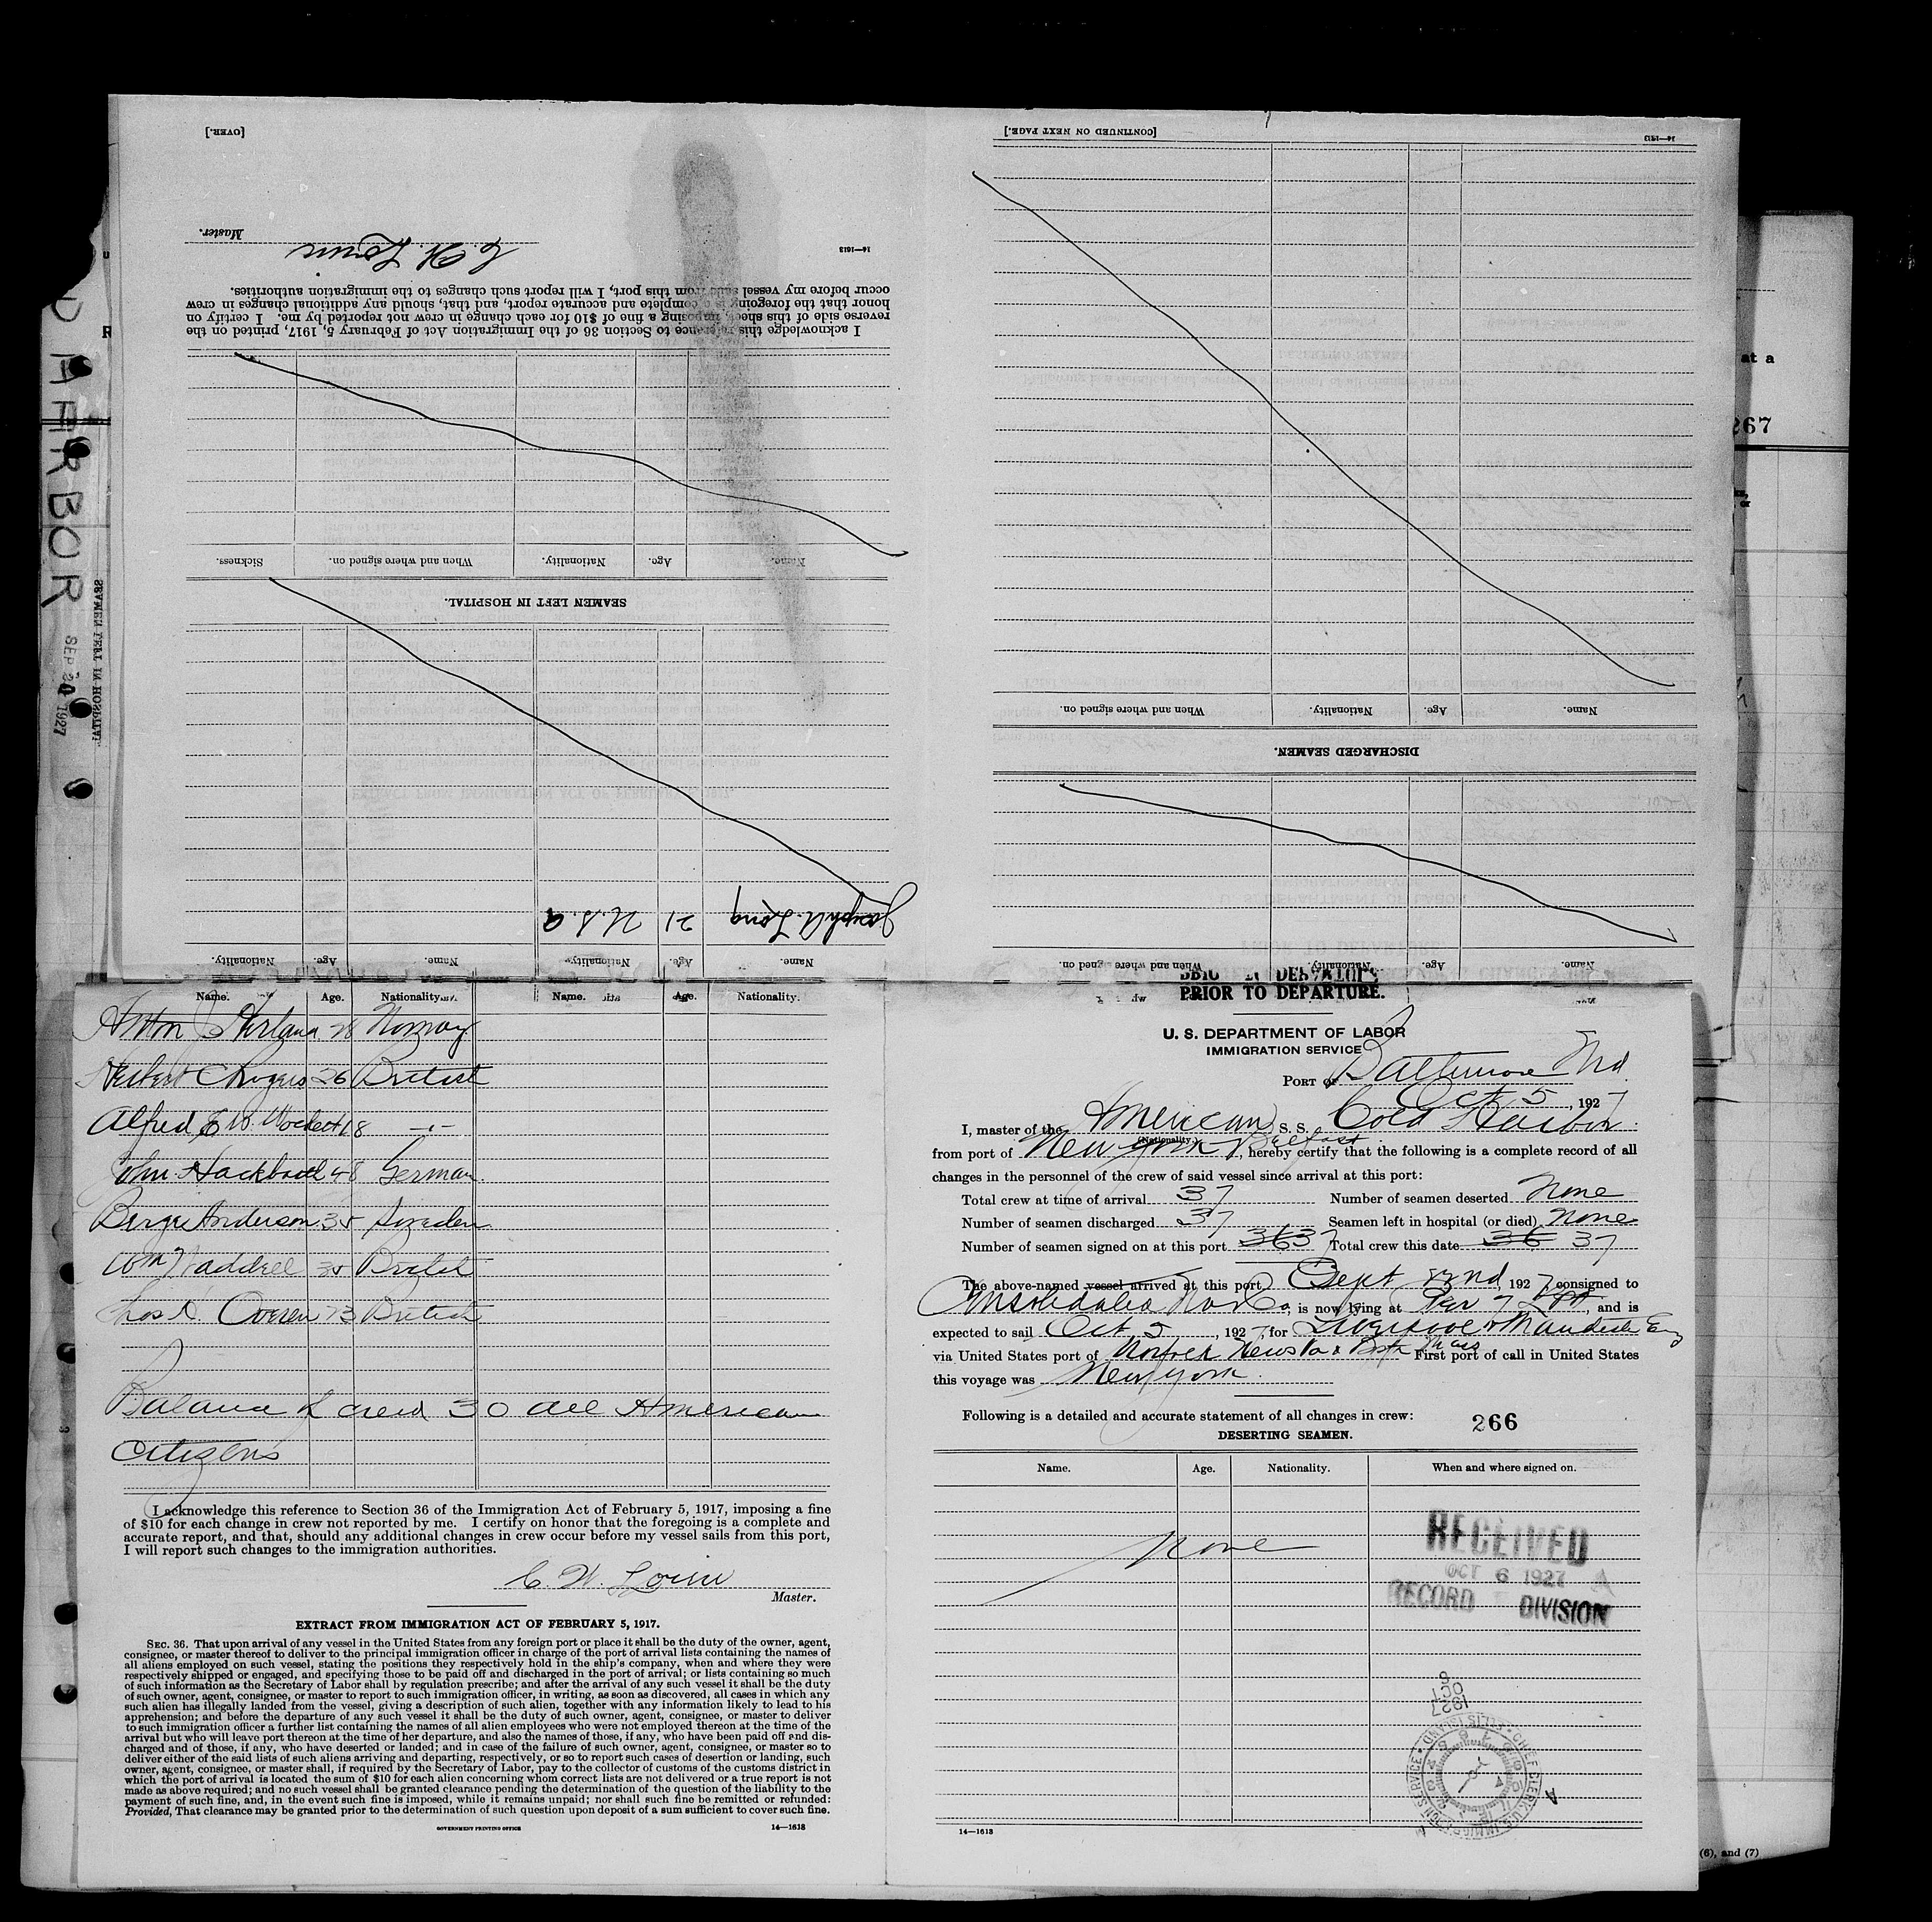 [OVER.]
Master.
C. W. Louis
14—1613
I acknowledge this reference to Section 36 of the Immigration Act of February 5, 1917, printed on the
reverse side of this sheet, imposing a fine of $10 for each change in crew not reported by me. I certify on
honor that the foregoing is a complete and accurate report, and that, should any additional changes in crew
occur before my vessel sails from this port, I will report such changes to the immigration authorities.
Name. Age. Nationality. When and where signed on. Sickness.
SEAMEN LEFT IN HOSPITAL.
Joseph A. Long 21 U.S.A
Name. Age. Nationality. Name. Age. Nationality.
[CONTINUED ON NEXT PAGE.]
14—1613
Name. Age. Nationality. When and where signed on.
DISCHARGED SEAMEN.
Name. Age. Nationality. When and where signed on.
D HARBOR
SEP 20 1927
SEAMEN LEFT IN HOSPITAL.
at a
267
(6), and (7)
Name. Age. Nationality. Name. Age. Nationality.
Anton 28 Norway
Herbert C Rogers 26 British
Alfred E W. 18 -"-
John Hackbarth 48 German
Birger Anderson 35 Sweden
Wm Waddell 35 British
Chas A. 73 British
Balance of crew 30 all American
Citizens
I acknowledge this reference to Section 36 of the Immigration Act of February 5, 1917, imposing a fine
of $10 for each change in crew not reported by me. I certify on honor that the foregoing is a complete and
accurate report, and that, should any additional changes in crew occur before my vessel sails from this port,
I will report such changes to the immigration authorities.
C. W. Louis
Master.
EXTRACT FROM IMMIGRATION ACT OF FEBRUARY 5, 1917.
SEC. 36. That upon arrival of any vessel in the United States from any foreign port or place it shall be the duty of the owner, agent,
consignee, or master thereof to deliver to the principal immigration officer in charge of the port of arrival lists containing the names of
all aliens employed on such vessel, stating the positions they respectively hold in the ship's company, when and where they were
respectively shipped or engaged, and specifying those to be paid off and discharged in the port of arrival; or lists containing so much
of such information as the Secretary of Labor shall by regulation prescribe; and after the arrival of any such vessel it shall be the duty
of such owner, agent, consignee, or master to report to such immigration officer, in writing, as soon as discovered, all cases in which any
such alien has illegally landed from the vessel, giving a description of such alien, together with any information likely to lead to his
apprehension; and before the departure of any such vessel it shall be the duty of such owner, agent, consignee, or master to deliver
to such immigration officer a further list containing the names of all alien employees who were not employed thereon at the time of the
arrival but who will leave port thereon at the time of her departure, and also the names of those, if any, who have been paid off and dis-
charged and of those, if any, who have deserted or landed; and in case of the failure of such owner, agent, consignee, or master so to
deliver either of the said lists of such aliens arriving and departing, respectively, or so to report such cases of desertion or landing, such
owner, agent, consignee, or master shall, if required by the Secretary of Labor, pay to the collector of customs of the customs district in
which the port of arrival is located the sum of $10 for each alien concerning whom correct lists are not delivered or a true report is not
made as above required; and no such vessel shall be granted clearance pending the determination of the question of the liability to the
payment of such fine, and, in the event such fine is imposed, while it remains unpaid; nor shall such fine be remitted or refunded:
Provided, That clearance may be granted prior to the determination of such question upon deposit of a sum sufficient to cover such fine.
GOVERNMENT PRINTING OFFICE
14—1613
PRIOR TO DEPARTURE.
U. S. DEPARTMENT OF LABOR
IMMIGRATION SERVICE
PORT OF Baltimore Md.
Oct 5, 1927
I, master of the American S. S. Cold Harbor
(Nationality.)
from port of New York Belfast, hereby certify that the following is a complete record of all
changes in the personnel of the crew of said vessel since arrival at this port:
Total crew at time of arrival 37 Number of seamen deserted None
Number of seamen discharged 37 Seamen left in hospital (or died) None
Number of seamen signed on at this port 36 37 Total crew this date 36 37
The above-named vessel arrived at this port Sept 22nd, 1927, consigned to
Consolidated Nav Co, is now lying at Pier 7, and is
expected to sail Oct 5, 1927, for Liverpool & Manchester Eng
via United States port of Norfolk News Va & First port of call in United States
this voyage was New York.
Following is a detailed and accurate statement of all changes in crew:
266
DESERTING SEAMEN.
Name. Age. Nationality. When and where signed on.
None
RECEIVED
OCT 6 1927
RECORD DIVISION
1927
OCT
CHIEF CLERK U.S. IMMIGRATION SERVICE ELLIS ISLAND
14—1613